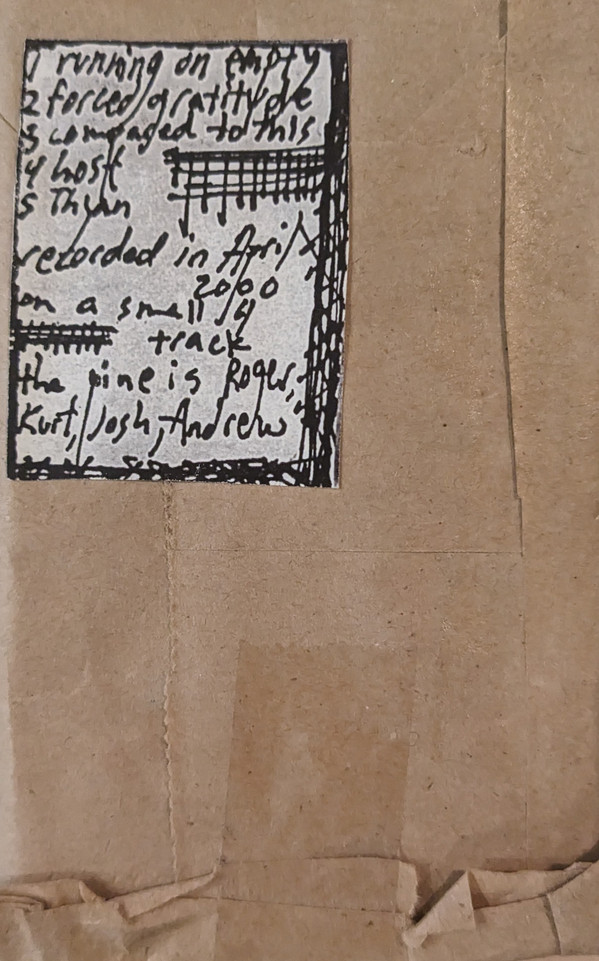 1 running on empty
2 forced gratitude
3 compaged to this
4 host
5 Thum
recorded in April
2000
on a small 4
track
the pine is Roger,
Kurt, Josh, Andrew